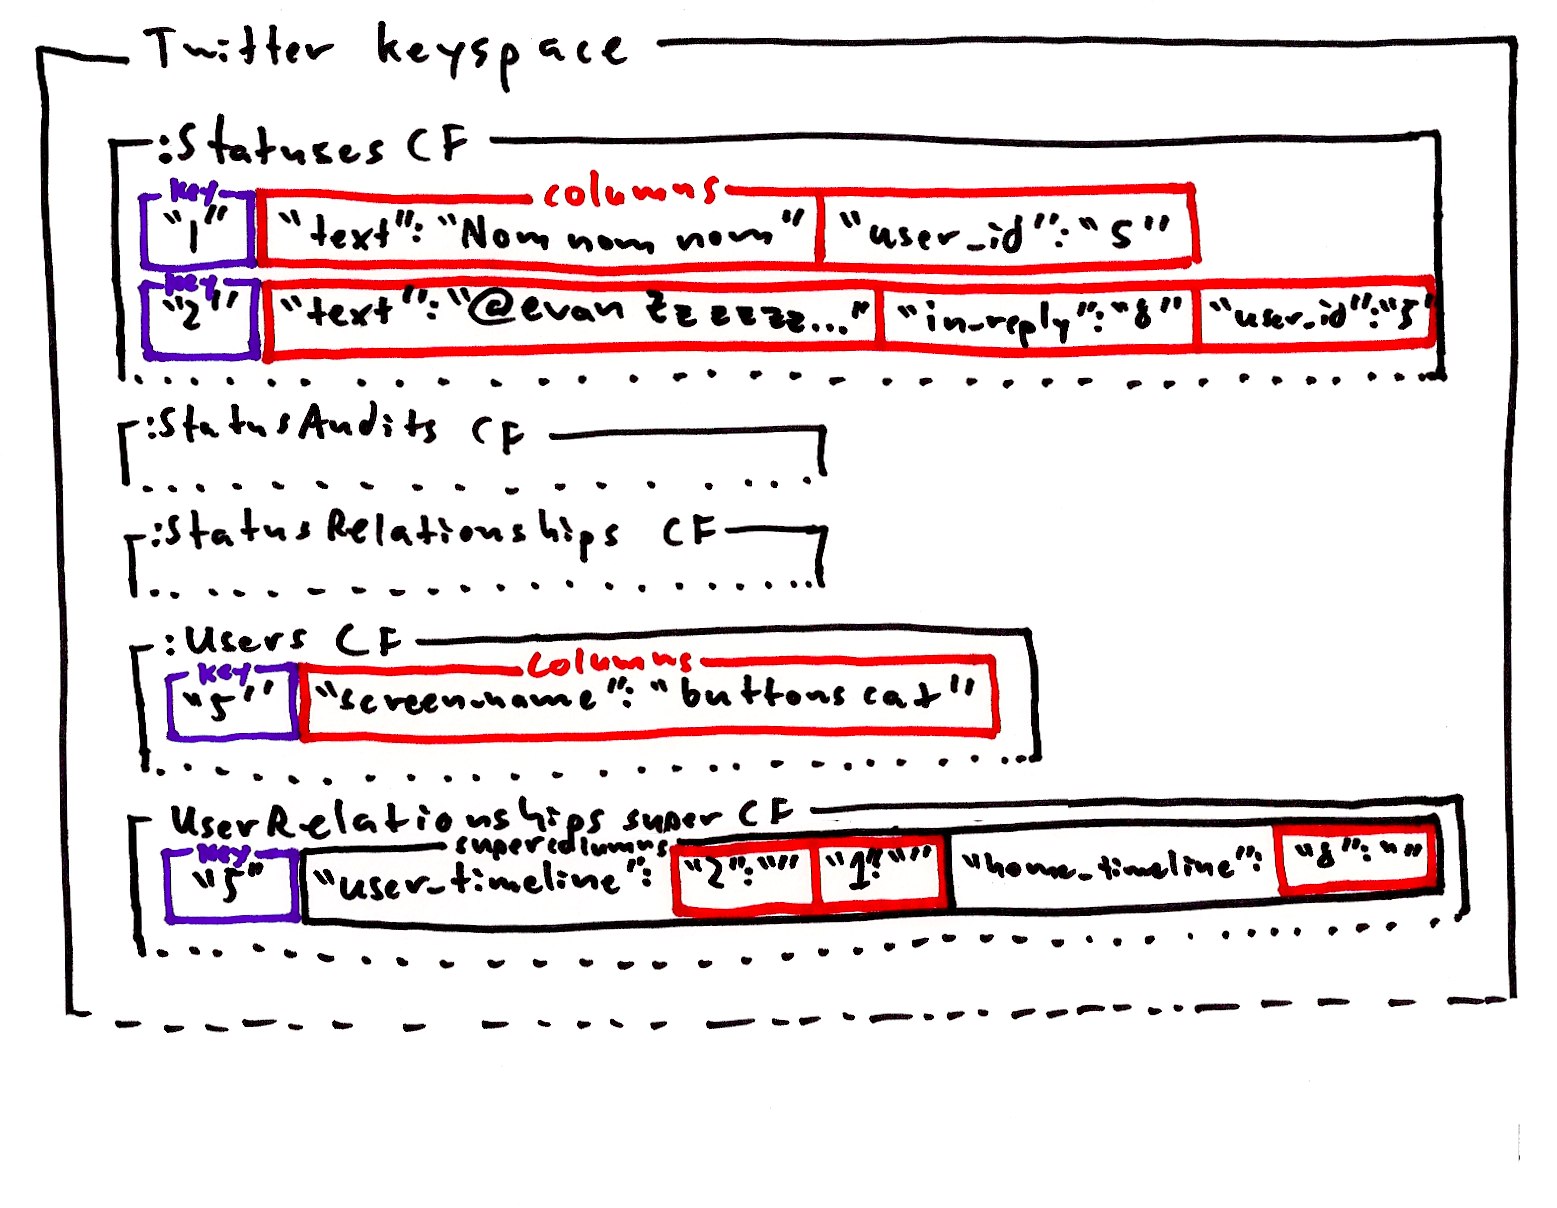 Twitter keyspace
:Statuses CF
key columns
"1" "text": "Nom nom nom" "user_id": "5"
key
"2" "text": "@evan zzzzzz..." "in-reply": "8" "user_id": "5"
:StatusAudits CF
:StatusRelationships CF
:Users CF
key columns
"5" "screen-name": "buttons cat"
UserRelationships super CF
key supercolumns
"5" "user_timeline": "2": "" "1": "" "home_timeline": "8": ""